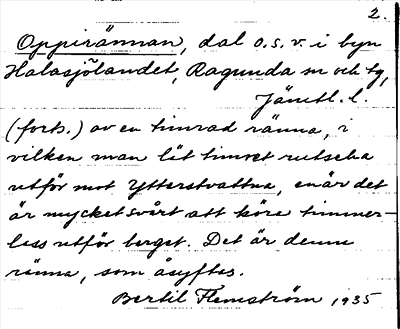 2.
Oppirännan, dal o.s.v. i byn
Halasjölandet, Ragunda sn och tg,
Jämtl. l.
(forts.) av en timrad ränna, i
vilken man lät timret rutscha
utför mot Ytterstvattna, enär det
är mycket svårt att köra timmer-
lass utför berget. Det är denna
ränna, som åsyftes.
Bertil Flemström 1935